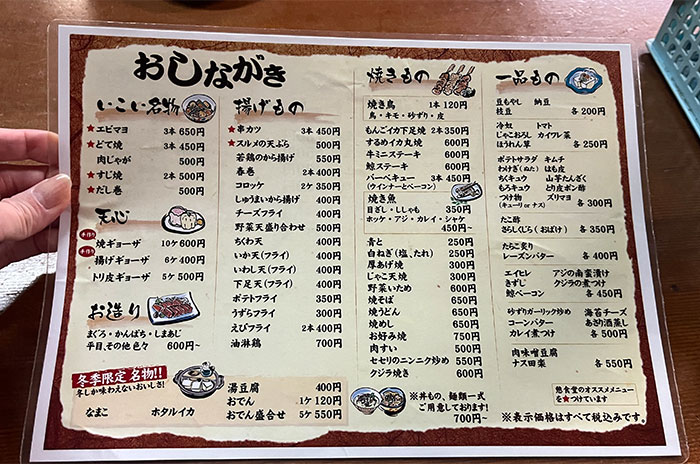 おしながき
いこい名物
★エビマヨ 3本 650円
★どて焼 3本 450円
肉じゃが 500円
★すじ焼 2本 500円
★だし巻 500円
天心
手作り 焼ギョーザ 10ケ 600円
手作り 揚げギョーザ 6ケ 400円
トリ皮ギョーザ 5ケ 500円
お造り
まぐろ・かんぱち・しまあじ
平目、その他色々 600円~
揚げもの
★串カツ 3本 450円
★スルメの天ぷら 500円
若鶏のから揚げ 550円
春巻 2本 400円
コロッケ 2ケ 350円
しゅうまいから揚げ 400円
チーズフライ 400円
野菜天盛り合わせ 500円
ちくわ天 400円
いか天(フライ) 400円
いわし天(フライ) 400円
下足天(フライ) 400円
ポテトフライ 350円
うずらフライ 300円
えびフライ 2本 400円
油淋鶏 700円
焼きもの
焼き鳥 1本 120円
鳥・キモ・砂ずり・皮
もんごイカ下足焼 2本 350円
するめイカ丸焼 600円
牛ミニステーキ 600円
鯨ステーキ 600円
バーベキュー 3本 450円
(ウインナーとベーコン)
焼き魚
目ざし・ししゃも 350円
ホッケ・アジ・カレイ・シャケ
450円~
青と 250円
白ねぎ(塩、たれ) 250円
厚あげ焼 300円
じゃこ天焼 300円
野菜いため 600円
焼そば 650円
焼うどん 650円
焼めし 650円
お好み焼 750円
肉すい 500円
セセリのニンニク炒め 550円
クジラ焼き 600円
※丼もの、麺類一式
ご用意しております!
700円~
一品もの
豆もやし 納豆
枝豆 各200円
冷奴 トマト
じゃこおろし カイワレ菜
ほうれん草 各250円
ポテトサラダ キムチ
わけぎ(ぬた) はも皮
ちくキュウ 山芋たんざく
もろキュウ とり皮ポン酢
つけ物 ズリマヨ
(キューリ or ナス) 各300円
たこ酢
さらしくじら(おばけ) 各350円
たらこ炙り
レーズンバター 各400円
エイヒレ アジの南蛮漬け
きずし クジラの煮つけ
鯨ベーコン 各450円
砂ずりガーリック炒め 海苔チーズ
コーンバター あさり酒蒸し
カレイ煮つけ 各500円
肉味噌豆腐
ナス田楽 各550円
憩食堂のオススメメニューを
★つけています
※表示価格はすべて税込みです。
冬季限定名物!!
冬しか味わえないおいしさ!
なまこ ホタルイカ
湯豆腐 400円
おでん 1ケ 120円
おでん盛合せ 5ケ 550円